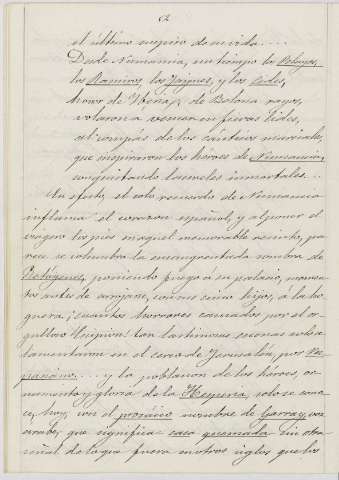 2
el último suspiro de su vida....
Desde Numancia, un tiempo los Pelayos,
los Ramiros, los Jaymes, y los Cides,
de Belona rayos,
volaron a vencer en fieras lides,
al compás de los cánticos marciales,
que inspiraron los héroes de Numancia,
conquistando laureles inmortales...
En efecto, el solo recuerdo de Numancia
inflama el corazon español, y al poner el
viagero los pies en aquel memorable recinto, pa-
rece se vislumbra la ensangrentada sombra de
poniendo fuego á su palacio, momen-
tos antes de arrojarse, con sus cinco hijos, á la ho-
guera; ¡cuantos horrores causados por el or-
gulloso Scipion! tan lastimosas escenas solo se
lamentaron en el cerco de Jerusalén, por Ves-
pasiano.... y la poblacion de los héroes, or-
namento y gloria de la Hesperia, solo se cono-
ce, hoy, con el prosáico nombre de Garray, voz
que significa casa quemada sin otra
señal de lo que fuera en otros siglos que los